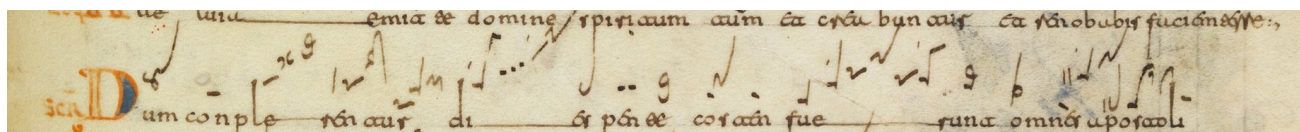 luia emitte domine spiritum tuum et creabuntur et renobabis faciem terre:,
Dum conplerentur dies pentecosten fuerunt omnes apostoli